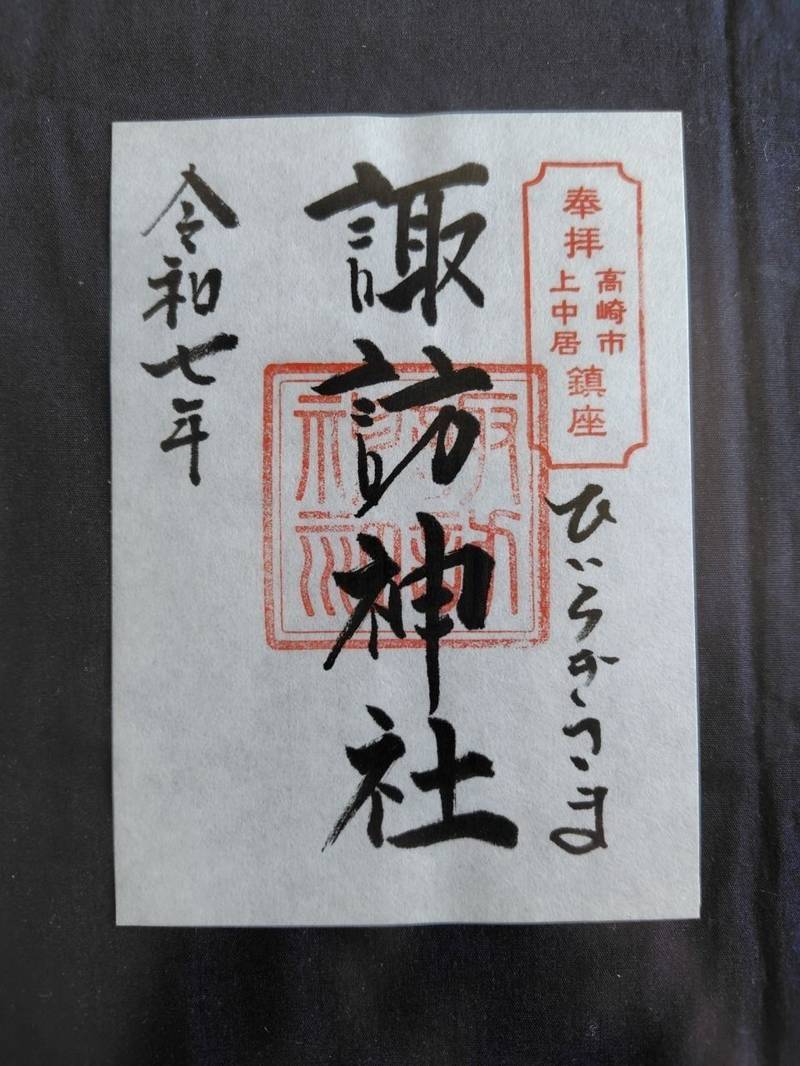 奉拝
高崎市
上中居
鎮座
ひいらぎさま
諏訪神社
令和七年